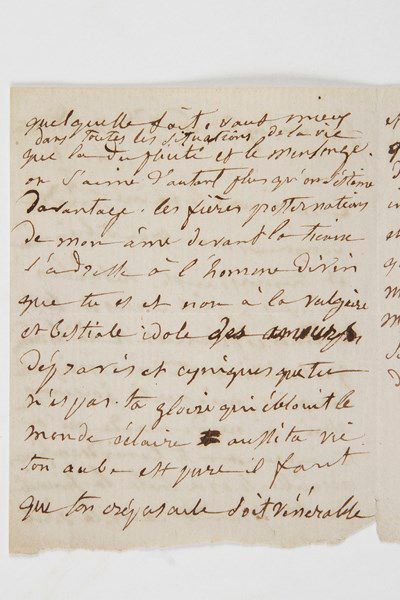 quelquelle soit, vaut mieux
dans toutes les situations de la vie
que la duplicité et le mensonge.
on s'aime d'autant plus qu'on s'estime
davantage. les fières prosternations
de mon âme devant la tienne
s'adresse à l'homme divin
que tu es et non à la vulgaire
et bestiale idole des amours
dépravés et cyniques que tu
n'es pas. ta gloire qui éblouit le
monde éclaire aussi ta vie.
ton aube est pure il faut
que ton crépuscule soit vénérable